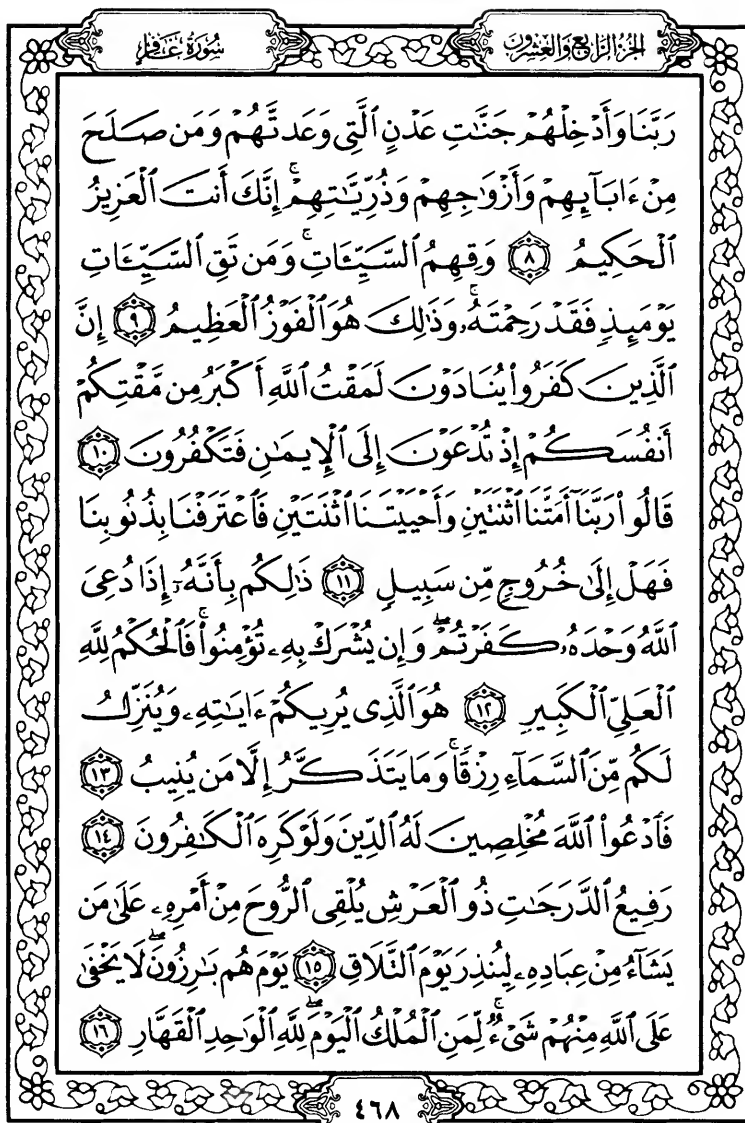 سُورَةُ غَافِرٍ
الجُزْءُ الرَّابِعُ وَالعِشْرُونَ
رَبَّنَا وَأَدۡخِلۡهُمۡ جَنَّٰتِ عَدۡنٍ ٱلَّتِي وَعَدتَّهُمۡ وَمَن صَلَحَ
مِنۡ ءَابَآئِهِمۡ وَأَزۡوَٰجِهِمۡ وَذُرِّيَّٰتِهِمۡۚ إِنَّكَ أَنتَ ٱلۡعَزِيزُ
ٱلۡحَكِيمُ ٨ وَقِهِمُ ٱلسَّيِّـَٔاتِۚ وَمَن تَقِ ٱلسَّيِّـَٔاتِ
يَوۡمَئِذٖ فَقَدۡ رَحِمۡتَهُۥۚ وَذَٰلِكَ هُوَ ٱلۡفَوۡزُ ٱلۡعَظِيمُ ٩ إِنَّ
ٱلَّذِينَ كَفَرُواْ يُنَادَوۡنَ لَمَقۡتُ ٱللَّهِ أَكۡبَرُ مِن مَّقۡتِكُمۡ
أَنفُسَكُمۡ إِذۡ تُدۡعَوۡنَ إِلَى ٱلۡإِيمَٰنِ فَتَكۡفُرُونَ ١٠
قَالُواْ رَبَّنَآ أَمَتَّنَا ٱثۡنَتَيۡنِ وَأَحۡيَيۡتَنَا ٱثۡنَتَيۡنِ فَٱعۡتَرَفۡنَا بِذُنُوبِنَا
فَهَلۡ إِلَىٰ خُرُوجٖ مِّن سَبِيلٖ ١١ ذَٰلِكُم بِأَنَّهُۥٓ إِذَا دُعِيَ
ٱللَّهُ وَحۡدَهُۥ كَفَرۡتُمۡ وَإِن يُشۡرَكۡ بِهِۦ تُؤۡمِنُواْۚ فَٱلۡحُكۡمُ لِلَّهِ
ٱلۡعَلِيِّ ٱلۡكَبِيرِ ١٢ هُوَ ٱلَّذِي يُرِيكُمۡ ءَايَٰتِهِۦ وَيُنَزِّلُ
لَكُم مِّنَ ٱلسَّمَآءِ رِزۡقٗاۚ وَمَا يَتَذَكَّرُ إِلَّا مَن يُنِيبُ ١٣
فَٱدۡعُواْ ٱللَّهَ مُخۡلِصِينَ لَهُ ٱلدِّينَ وَلَوۡ كَرِهَ ٱلۡكَٰفِرُونَ ١٤
رَفِيعُ ٱلدَّرَجَٰتِ ذُو ٱلۡعَرۡشِ يُلۡقِي ٱلرُّوحَ مِنۡ أَمۡرِهِۦ عَلَىٰ مَن
يَشَآءُ مِنۡ عِبَادِهِۦ لِيُنذِرَ يَوۡمَ ٱلتَّلَاقِ ١٥ يَوۡمَ هُم بَٰرِزُونَۖ لَا يَخۡفَىٰ
عَلَى ٱللَّهِ مِنۡهُمۡ شَيۡءٞۚ لِّمَنِ ٱلۡمُلۡكُ ٱلۡيَوۡمَۖ لِلَّهِ ٱلۡوَٰحِدِ ٱلۡقَهَّارِ ١٦
٤٦٨